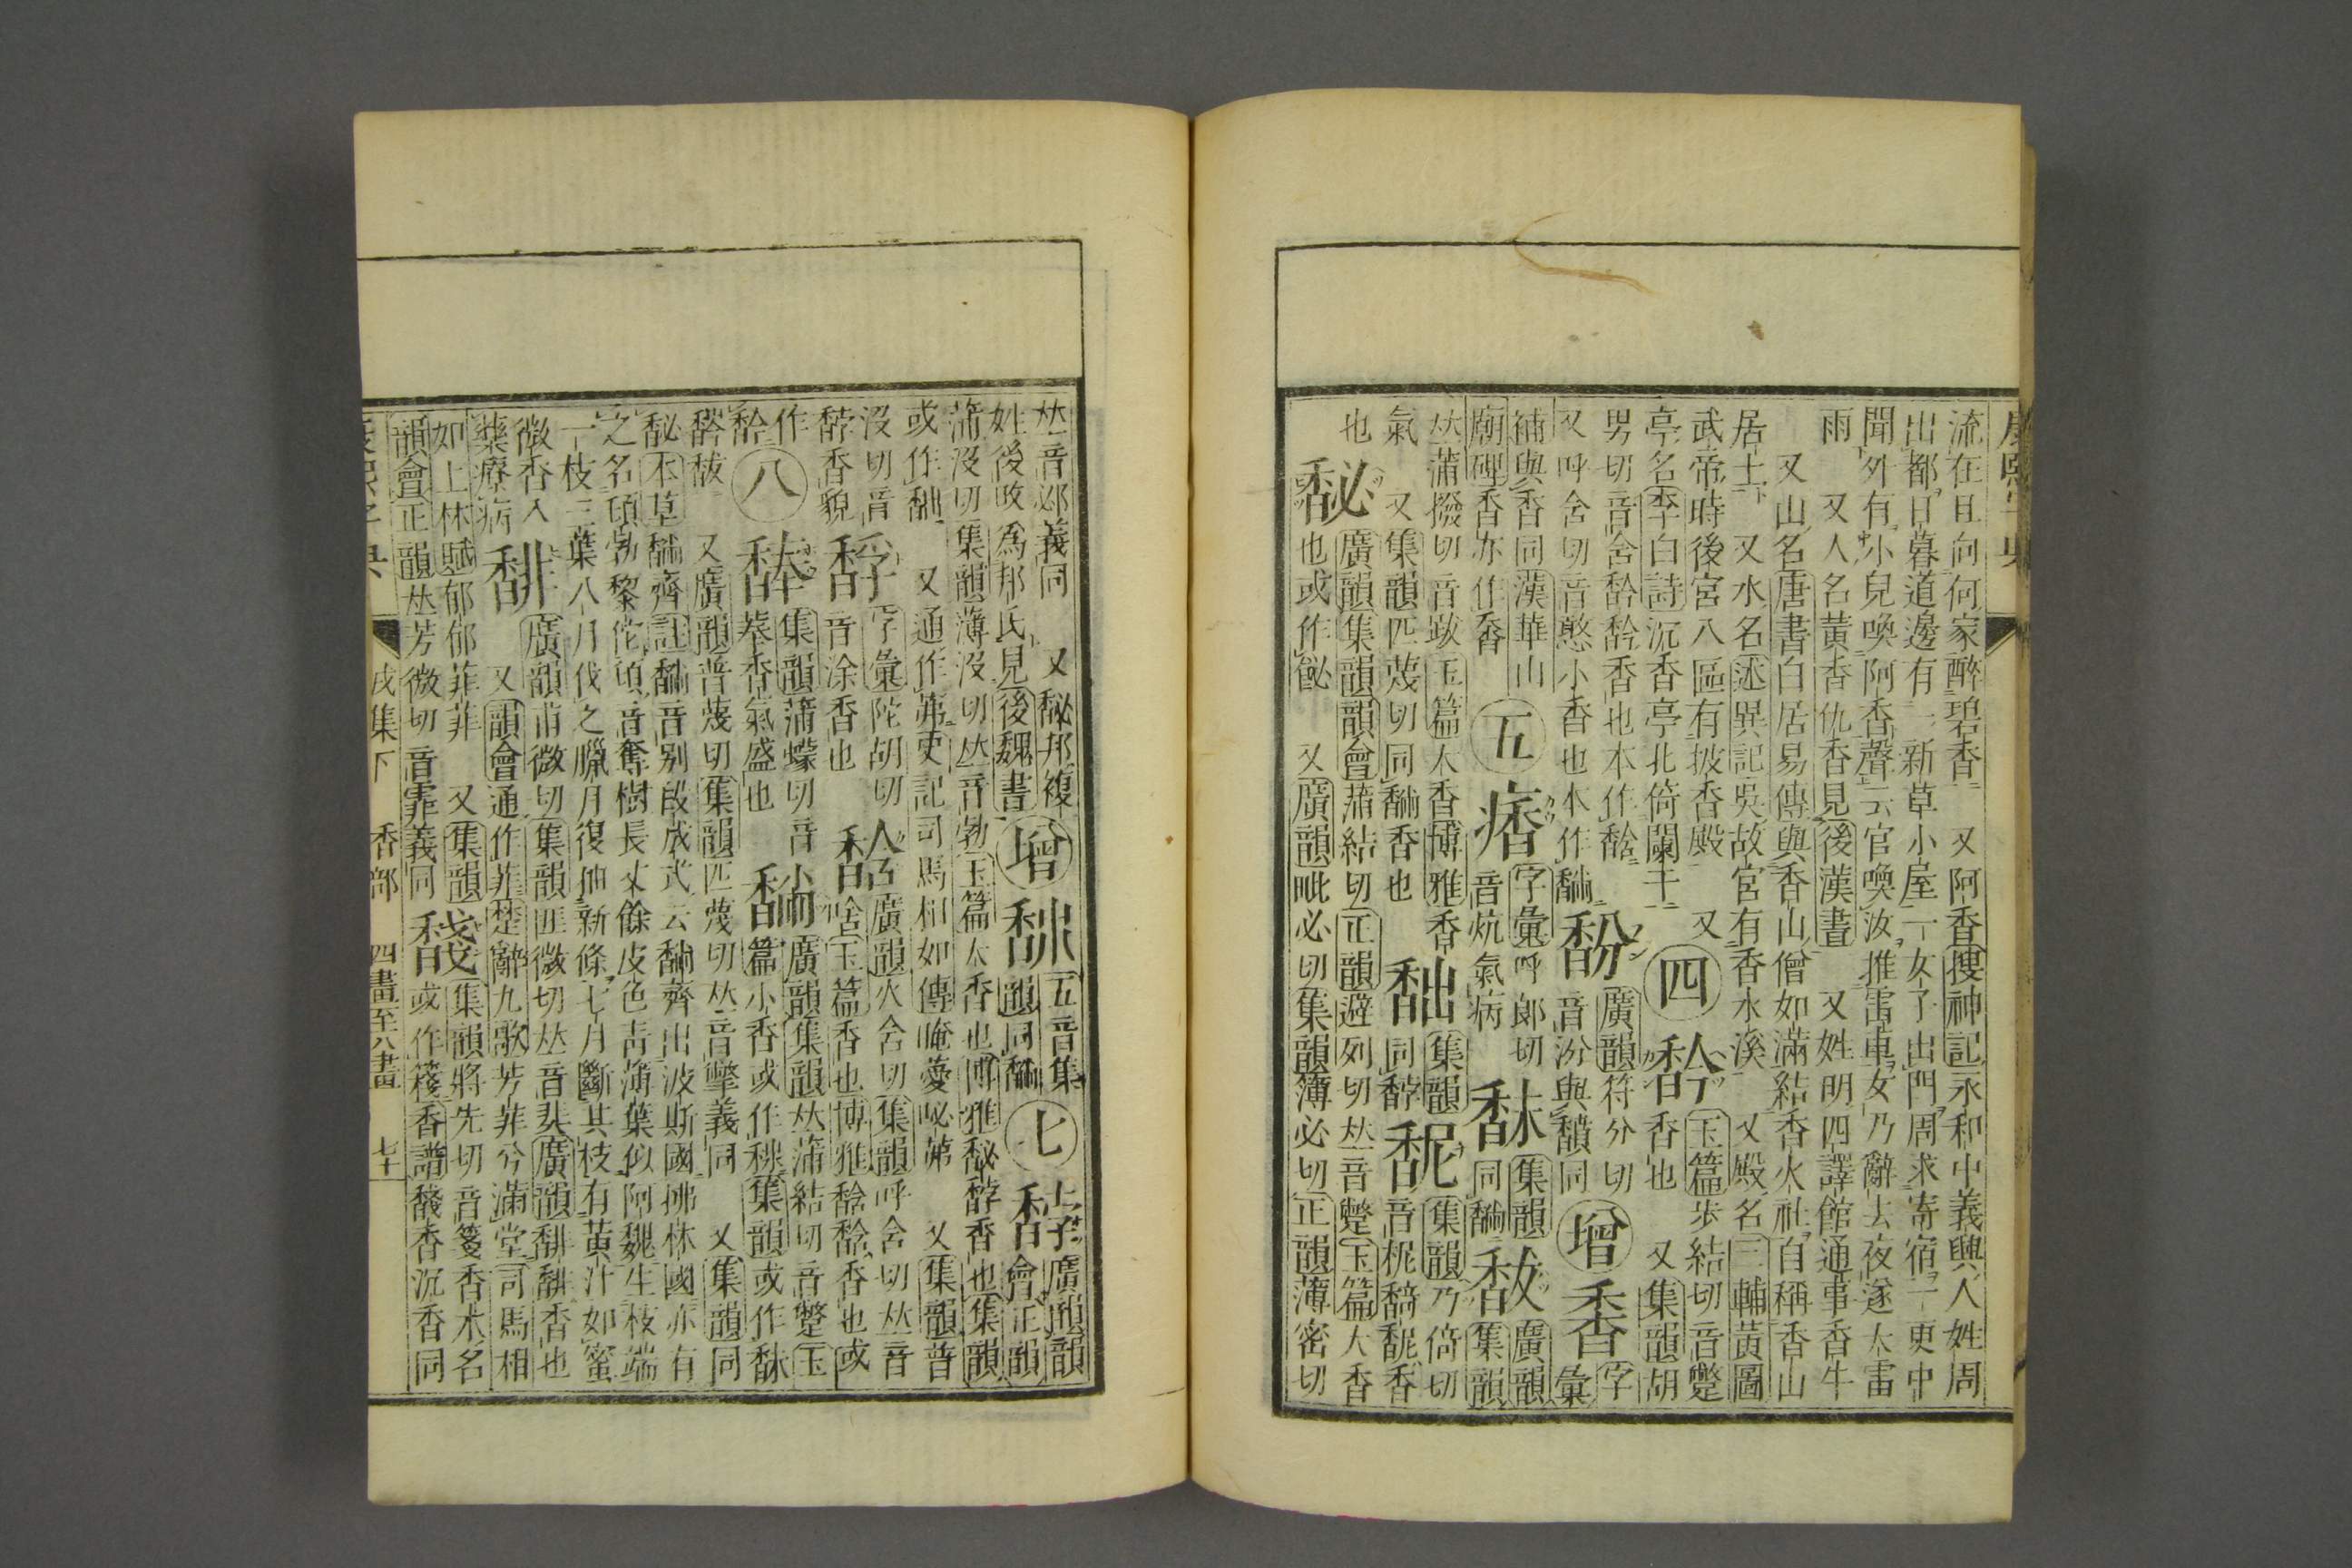 流在旦向何家醉碧香一　又阿香搜神記永和中義興人姓周
出都日暮道邊有一新草小屋一女子出門周求寄宿一更中
聞外有小兒喚阿香聲云官喚汝推雷車女乃辭去夜遂大雷
雨　又人名黃香仇香見後漢書　又姓明四譯館通事香牛
又山名唐書白居易傳與香山僧如滿結香火社自稱香山
居士　又水名述異記吳故宮有香水溪　又殿名三輔黃圖
武帝時後宮八區有披香殿　又
亭名李白詩沉香亭北倚闌干
四
馚 玉篇步結切音蹩
香也　又集韻胡
男切音含馠馠香也本作馠
又呼含切音憨小香也本作馣
馚 廣韻符分切
音汾與馩同
增
字彙
補與香同漢華山
廟碑香亦作
五
字彙呼郎切
音炕氣病
集韻
同馣
廣韻
集韻
𠀤蒲撥切音跋玉篇大香博雅香
氣　又集韻匹蔑切同馣香也
集韻
同馞
馜 集韻乃倚切
音柅馣馜香
也
馝 廣韻集韻韻會蒲結切正韻避列切𠀤音蹩玉篇大香
也或作䬛　又廣韻毗必切集韻簿必切正韻薄密切
𠀤音邲義同　又馝邦複
姓後改爲邦氏見後魏書
增
五音集
韻同馣
七
馞 廣韻
會正韻
蒲沒切集韻薄沒切𠀤音勃玉篇大香也博雅馝馞香也集韻
或作馣　又通作茀史記司馬相如傳晻薆咇茀　又集韻普
沒切音
馞香貌
稌 字彙陀胡切
音涂香也
馠 廣韻火含切集韻呼含切𠀤音
唅玉篇香也博雅馠馠香也或
作
馠
八
馡 集韻蒲蠓切音
菶香氣盛也
馣 廣韻集韻𠀤蒲結切音蹩玉
篇小香或作秘集韻或作
馛　又廣韻普蔑切集韻匹蔑切𠀤音撆義同　又集韻同
馝本草馣齊註馣音別段成式云馣齊出波斯國拂林國亦有
之名頇勃黎佗頇音奪樹長丈餘皮色青薄葉似阿魏生枝端
一枝三葉八月伐之臘月復抽新條七月斷其枝有黃汁如蜜
微香入
藥療病
馡 廣韻甫微切集韻匪微切𠀤音非廣韻馡馡香也
又韻會通作菲楚辭九歌芳菲兮滿堂司馬相
如上林賦郁郁菲菲　又集韻
韻會正韻𠀤芳微切音霏義同
馢 集韻將先切音箋香木名
或作箋香譜馢香沉香同
戌集下　香部　四畫至八畫　七十